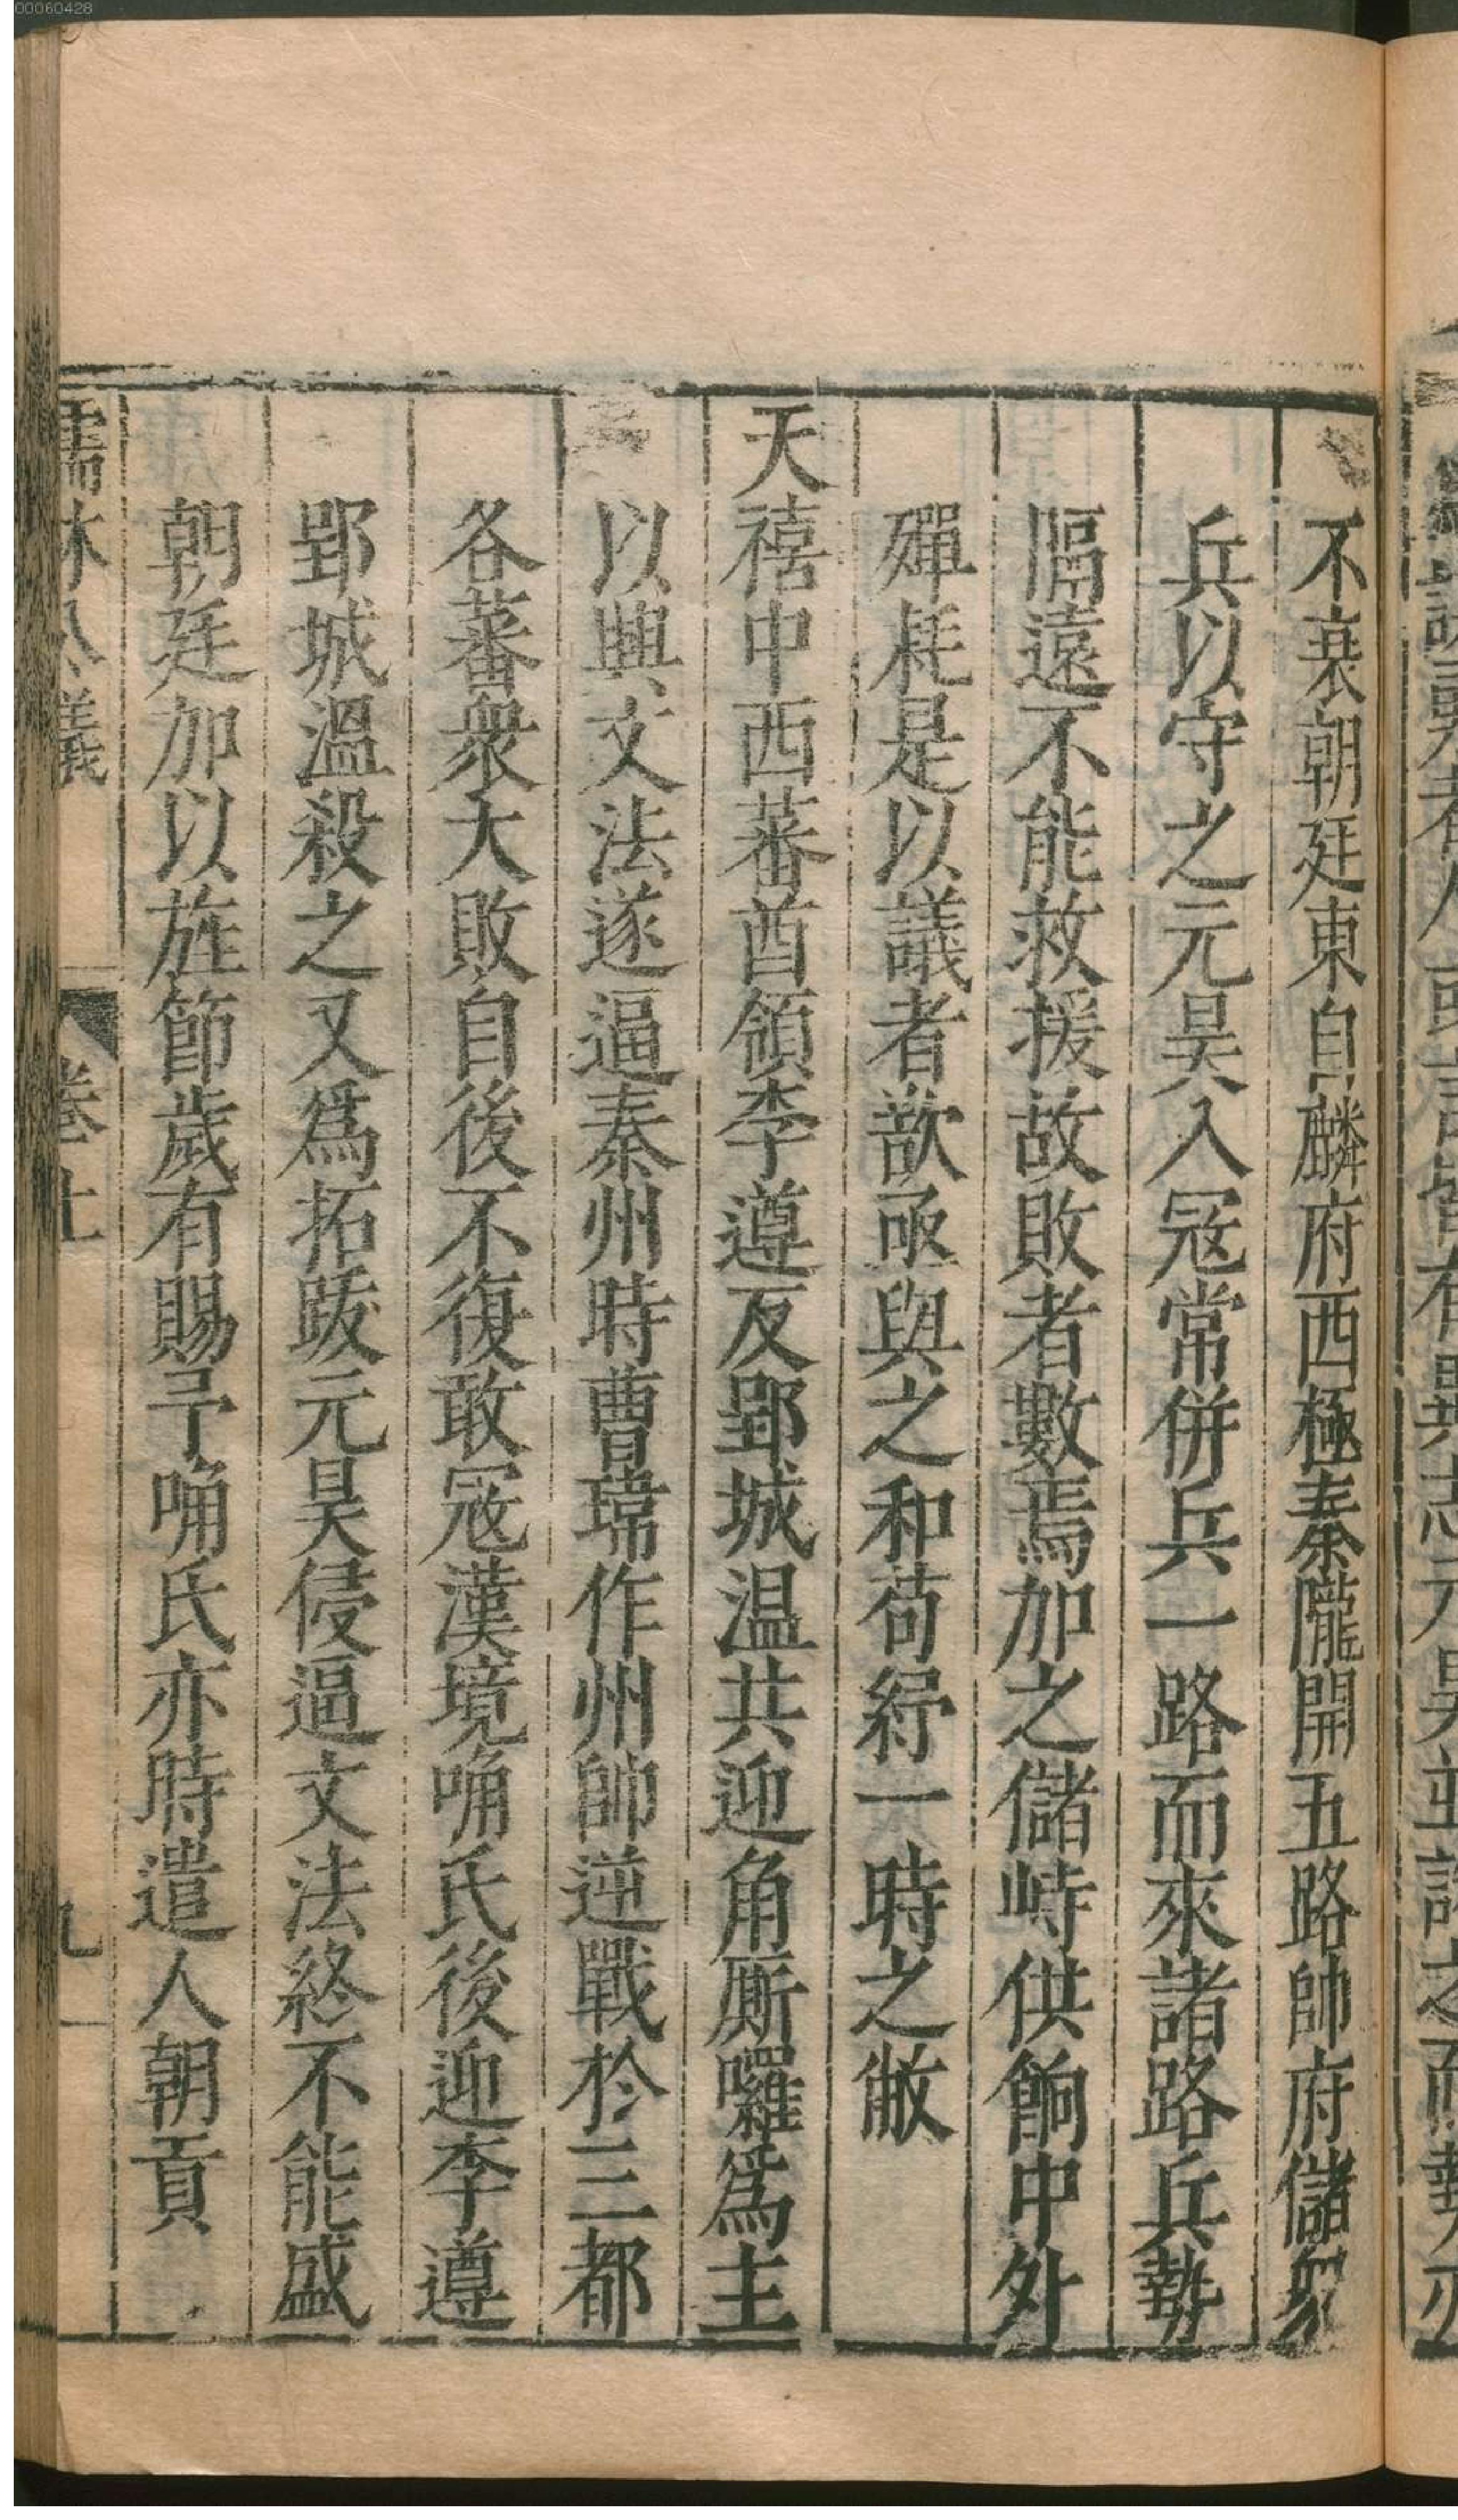 00060428
不衰朝廷東自麟府西極秦隴開五路帥府儲
兵以守之元昊入冦常併兵一路而來諸路兵勢
隔遠不能救援故敗者數焉加之儲峙供餉中外
殫耗是以議者歆亟與之和苟紓一時之敝
天禧中西蕃酋領李遵反郢城温共迎角厮囉爲主
以興文法遂逼秦州時曹瑋作州帥逆戰於三都
各蕃衆大敗自後不復敢冦漢境唃氏後迎李遵
郢城溫殺之又爲拓䟦元昊侵逼文法終不能盛
朝廷加以旌節歲有賜予唃氏亦時遣人朝貢
儒林公議
卷上
九